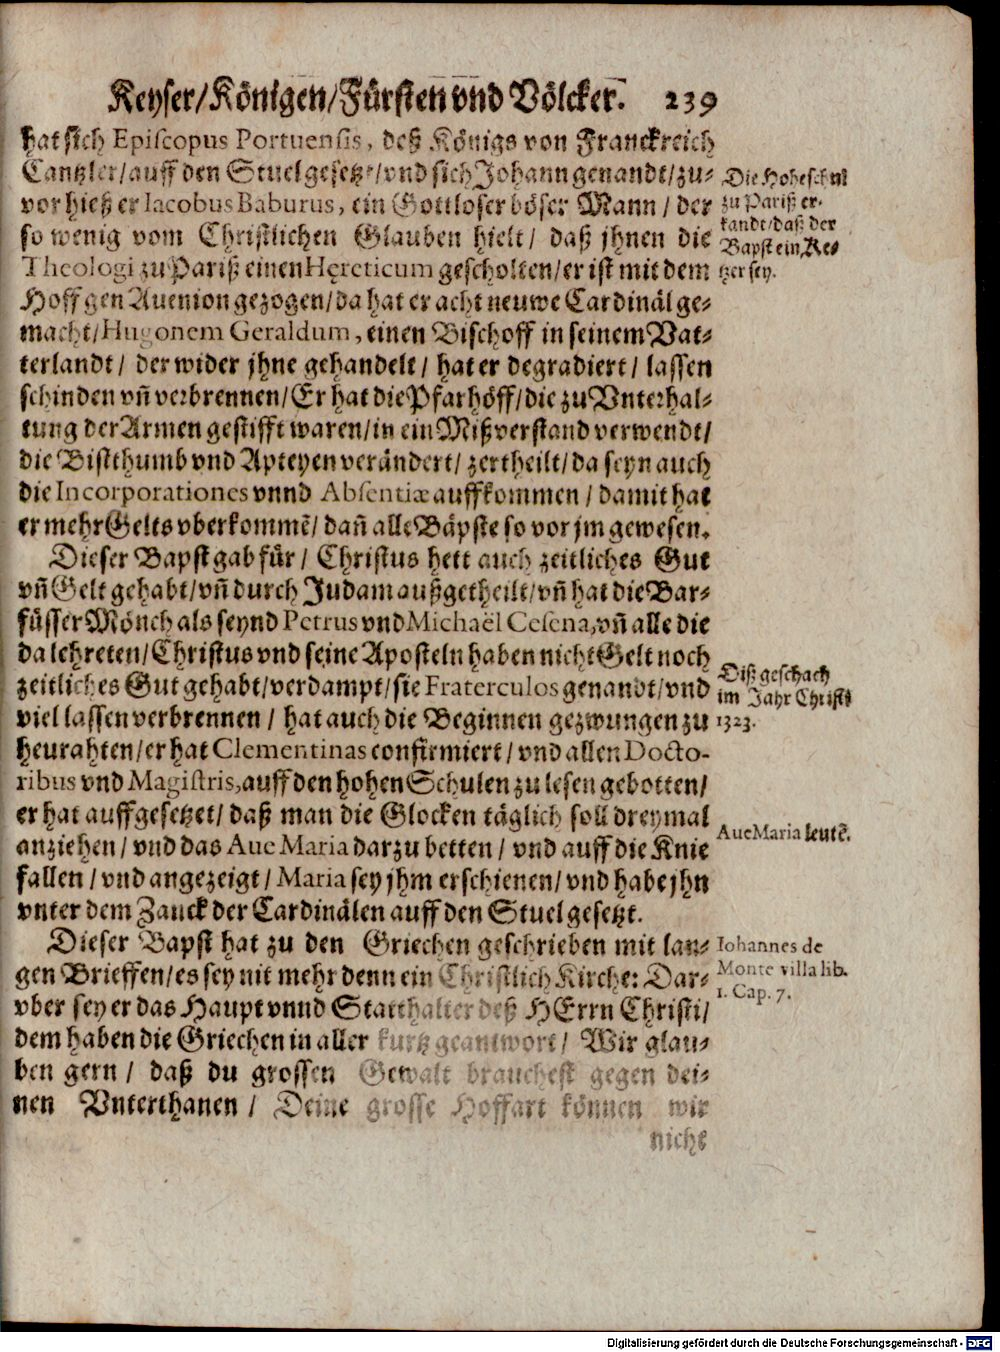 Keyser/Königen/Fürsten vnd Völcker. 239
hat sich Episcopus Portuensis, deß Königs von Franckreich
Cantzler/auff den Stuel gesetzt/vnd sich Johann genandt/zu-
vor hieß er Iacobus Baburus, ein Gottloser böser Mann/der
so wenig vom Christlichen Glauben hielt/ daß jhnen die
Theologi zu Pariß einen Hęreticum gescholten/er ist mit dem
Hoff gen Auenion gezogen/da hat er acht neuwe Cardinäl ge-
macht/Hugonem Geraldum, einen Bischoff in seinem Vat-
terlandt/ der wider jhne gehandelt/ hat er degradiert/ lassen
schinden vñ verbrennen/Er hat die Pfarhöff/die zu Vnterhal-
tung der Armen gestifft waren/in ein Mißverstand verwendt/
die Bistthumb vnd Apteyen verändert/ zertheilt/da seyn auch
die Incorporationes vnnd Absentiæ auffkommen/damit hat
er mehr Gelts vberkommẽ/dañ alle Bäpste so vor jm gewesen.
Dieser Bapst gab für/ Christus hett auch zeitliches Gut
vñ Gelt gehabt/vñ durch Judam außgetheilt/vñ hat die Bar-
füsser Mönch als seynd Petrus vnd Michaël Cesena, vñ alle die
da lehreten/Christus vnd seine Aposteln haben nicht Gelt noch
zeitliches Gut gehabt/verdampt/sie Fraterculos genandt/vnd
viel lassen verbrennen/ hat auch die Beginnen gezwungen zu
heurahten/er hat Clementinas confirmiert/vnd allen Docto-
ribus vnd Magistris, auff den hohen Schulen zu lesen gebotten/
er hat auffgesetzet/ daß man die Glocken täglich soll dreymal
anziehen/ vnd das Aue Maria darzu betten/ vnd auff die Knie
fallen/vnd angezeigt/ Maria sey jhm erschienen/vnd habe jhn
vnter dem Zanck der Cardinälen auff den Stuel gesetzt.
Dieser Bapst hat zu den Griechen geschrieben mit lan-
gen Brieffen/es sey nit mehr denn ein Christlich Kirche: Dar-
vber sey er das Haupt vnnd Statthalter deß HErrn Christi/
dem haben die Griechen in aller kurtz geantwort/ Wir glau-
ben gern/ daß du grossen Gewalt brauchest gegen dei-
nen Vnterthanen/ Deine grosse Hoffart können wir
nicht
Die Hohe schul
zu Pariß er-
kandt/daß der
Bapst ein Ke-
tzer sey.
Diß geschach
im Jahr Christi
1323.
Aue Maria leutẽ.
Iohannes de
Monte villa lib.
1. Cap. 7.
Digitalisierung gefördert durch die Deutsche Forschungsgemeinschaft - DFG